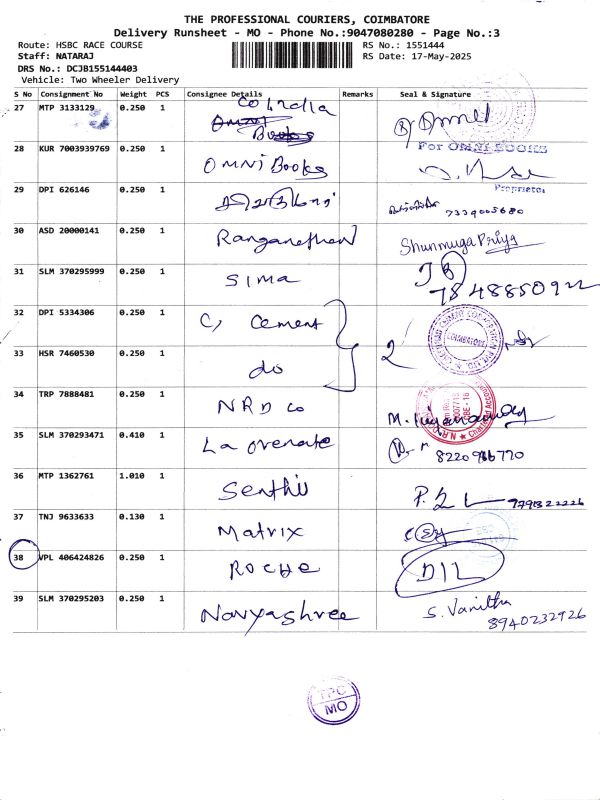 THE PROFESSIONAL COURIERS, COIMBATORE
Delivery Runsheet - MO - Phone No.:9047080280 - Page No.:3
Route: HSBC RACE COURSE RS No.: 1551444
Staff: NATARAJ RS Date: 17-May-2025
DRS No.: DCJB155144403
Vehicle: Two Wheeler Delivery
S No Consignment No Weight PCS Consignee Details Remarks Seal & Signature
27 MTP 3133129 0.250 1 Co India
Books
28 KUR 7003939769 0.250 1 OMNi Books For OMNI BOOKS
Proprietor
29 DPI 626146 0.250 1 7339005680
30 ASD 20000141 0.250 1 Ranganathan Shunmuga Priya
31 SLM 370295999 0.250 1 Sima
32 DPI 5334306 0.250 1 C, Cement 2 COIMBATORE
33 HSR 7460530 0.250 1 do
34 TRP 7888481 0.250 1 NRD Co
35 SLM 370293471 0.410 1
36 MTP 1362761 1.010 1 Senthil
37 TNJ 9633633 0.130 1 Matrix
38 VPL 406424826 0.250 1 Roche
39 SLM 370295203 0.250 1 Navyashree S. Vanitha
8940232926
TPC
MO